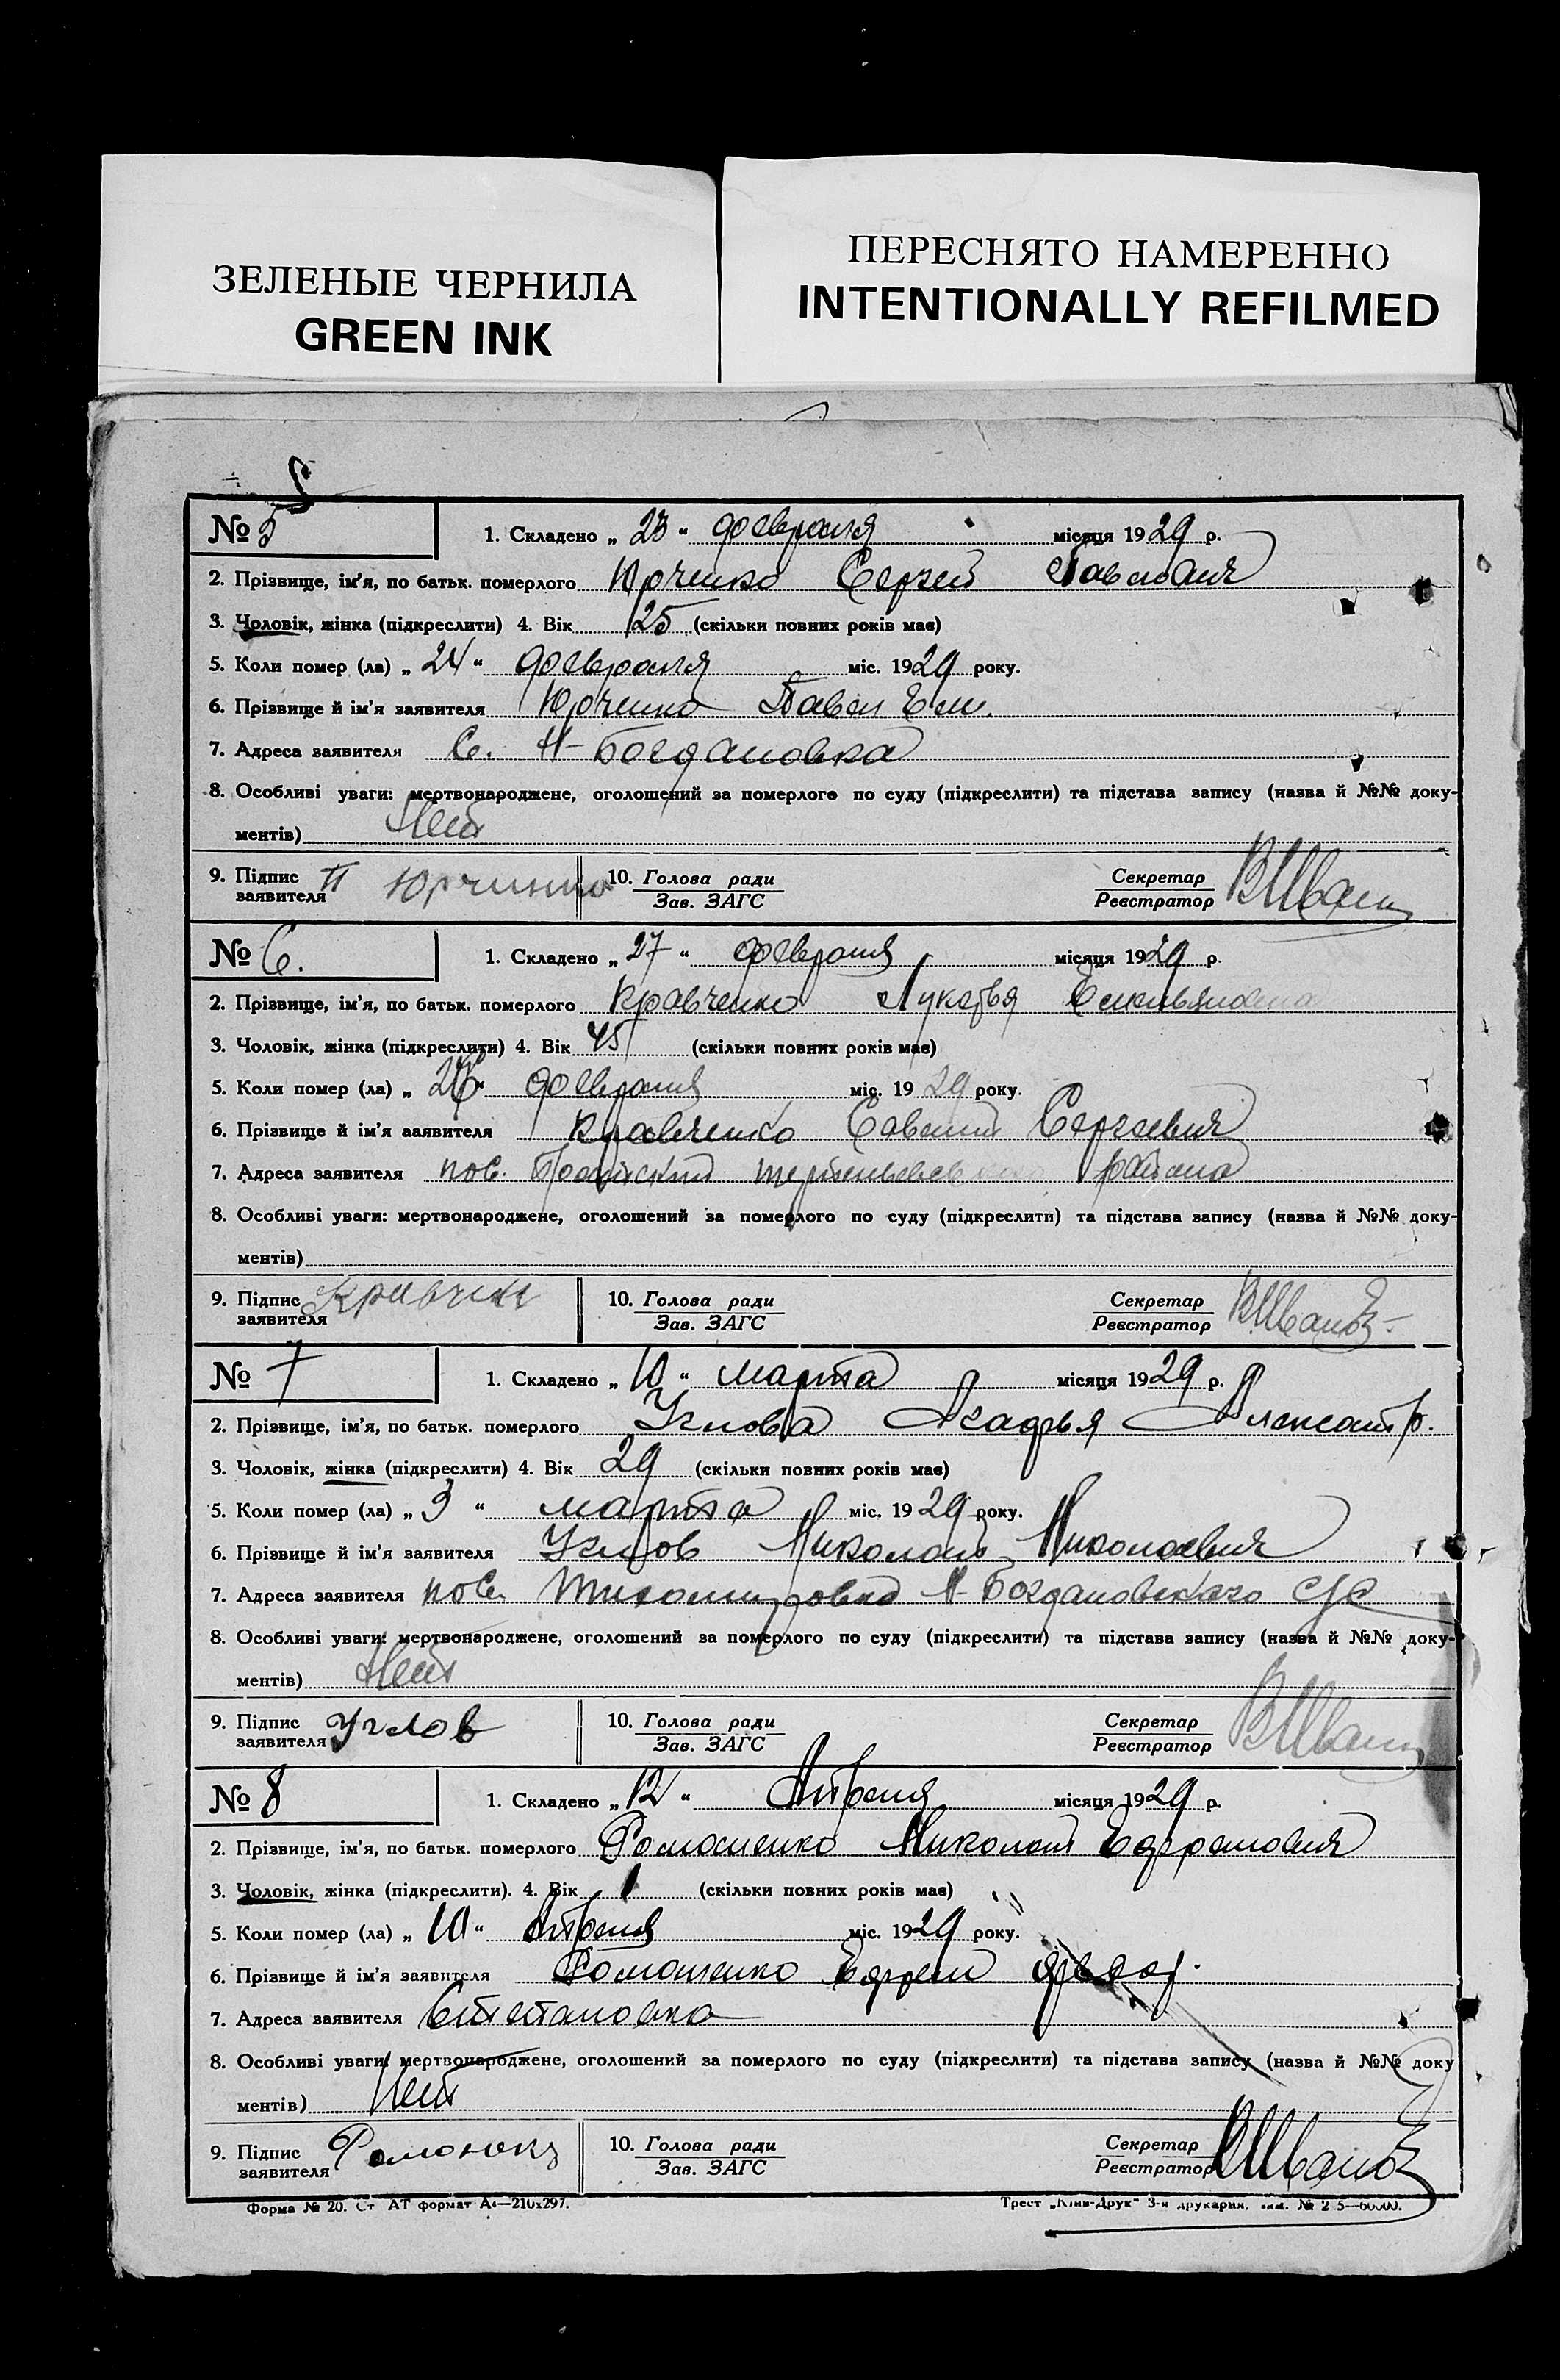 ЗЕЛЕНЫЕ ЧЕРНИЛА
GREEN INK
ПЕРЕСНЯТО НАМЕРЕННО
INTENTIONALLY REFILMED
№ 5
1. Складено „ 23 “ февраля місяця 1929 р.
2. Прізвище, ім’я, по батьк. померлого Юрченко Сергей Павлович
3. Чоловік, жінка (підкреслити) 4. Вік 25 (скільки повних років має)
5. Коли помер (ла) „ 24 “ февраля міс. 1929 року.
6. Прізвище й ім’я заявителя Юрченко Павел Ем.
7. Адреса заявителя С. Н-Богдановка
8. Особливі уваги: мертвонароджене, оголошений за померлого по суду (підкреслити) та підстава запису (назва й №№ доку-
ментів) Нет
9. Підпис заявителя П Юрчинко
10. Голова ради
Зав. ЗАГС
Секретар
Реєстратор
№ 6.
1. Складено „ 27 “ февраля місяця 1929 р.
2. Прізвище, ім’я, по батьк. померлого Кравченко Лукерья Емельяновна
3. Чоловік, жінка (підкреслити) 4. Вік 45 (скільки повних років має)
5. Коли помер (ла) „ “ февраля міс. 1929 року.
6. Прізвище й ім’я заявителя Кравченко Савелий Сергеевич
7. Адреса заявителя пос. района
8. Особливі уваги: мертвонароджене, оголошений за померлого по суду (підкреслити) та підстава запису (назва й №№ доку-
ментів)
9. Підпис заявителя Кравчен
10. Голова ради
Зав. ЗАГС
Секретар
Реєстратор
№ 7
1. Складено „ 10 “ марта місяця 1929 р.
2. Прізвище, ім’я, по батьк. померлого Углова Агафья Александр.
3. Чоловік, жінка (підкреслити) 4. Вік 29 (скільки повних років має)
5. Коли помер (ла) „ 3 “ марта міс. 1929 року.
6. Прізвище й ім’я заявителя Углов Николай Николаевич
7. Адреса заявителя пос. Тихомировка Н-Богдановского с/с
8. Особливі уваги: мертвонароджене, оголошений за померлого по суду (підкреслити) та підстава запису (назва й №№ доку-
ментів) Нет
9. Підпис заявителя Углов
10. Голова ради
Зав. ЗАГС
Секретар
Реєстратор
№ 8
1. Складено „ 12 “ Апреля місяця 1929 р.
2. Прізвище, ім’я, по батьк. померлого Романенко Николай Ефремович
3. Чоловік, жінка (підкреслити). 4. Вік 1 (скільки повних років має)
5. Коли помер (ла) „ 10 “ Апреля міс. 1929 року.
6. Прізвище й ім’я заявителя Романенко Ефрем
7. Адреса заявителя Степановка
8. Особливі уваги: мертвонароджене, оголошений за померлого по суду (підкреслити) та підстава запису (назва й №№ доку
ментів) Нет
9. Підпис заявителя
10. Голова ради
Зав. ЗАГС
Секретар
Реєстратор
Форма № 20. Ст АТ формат А4—210х297.
Трест „Київ-Друк“ 3-я друкарня.